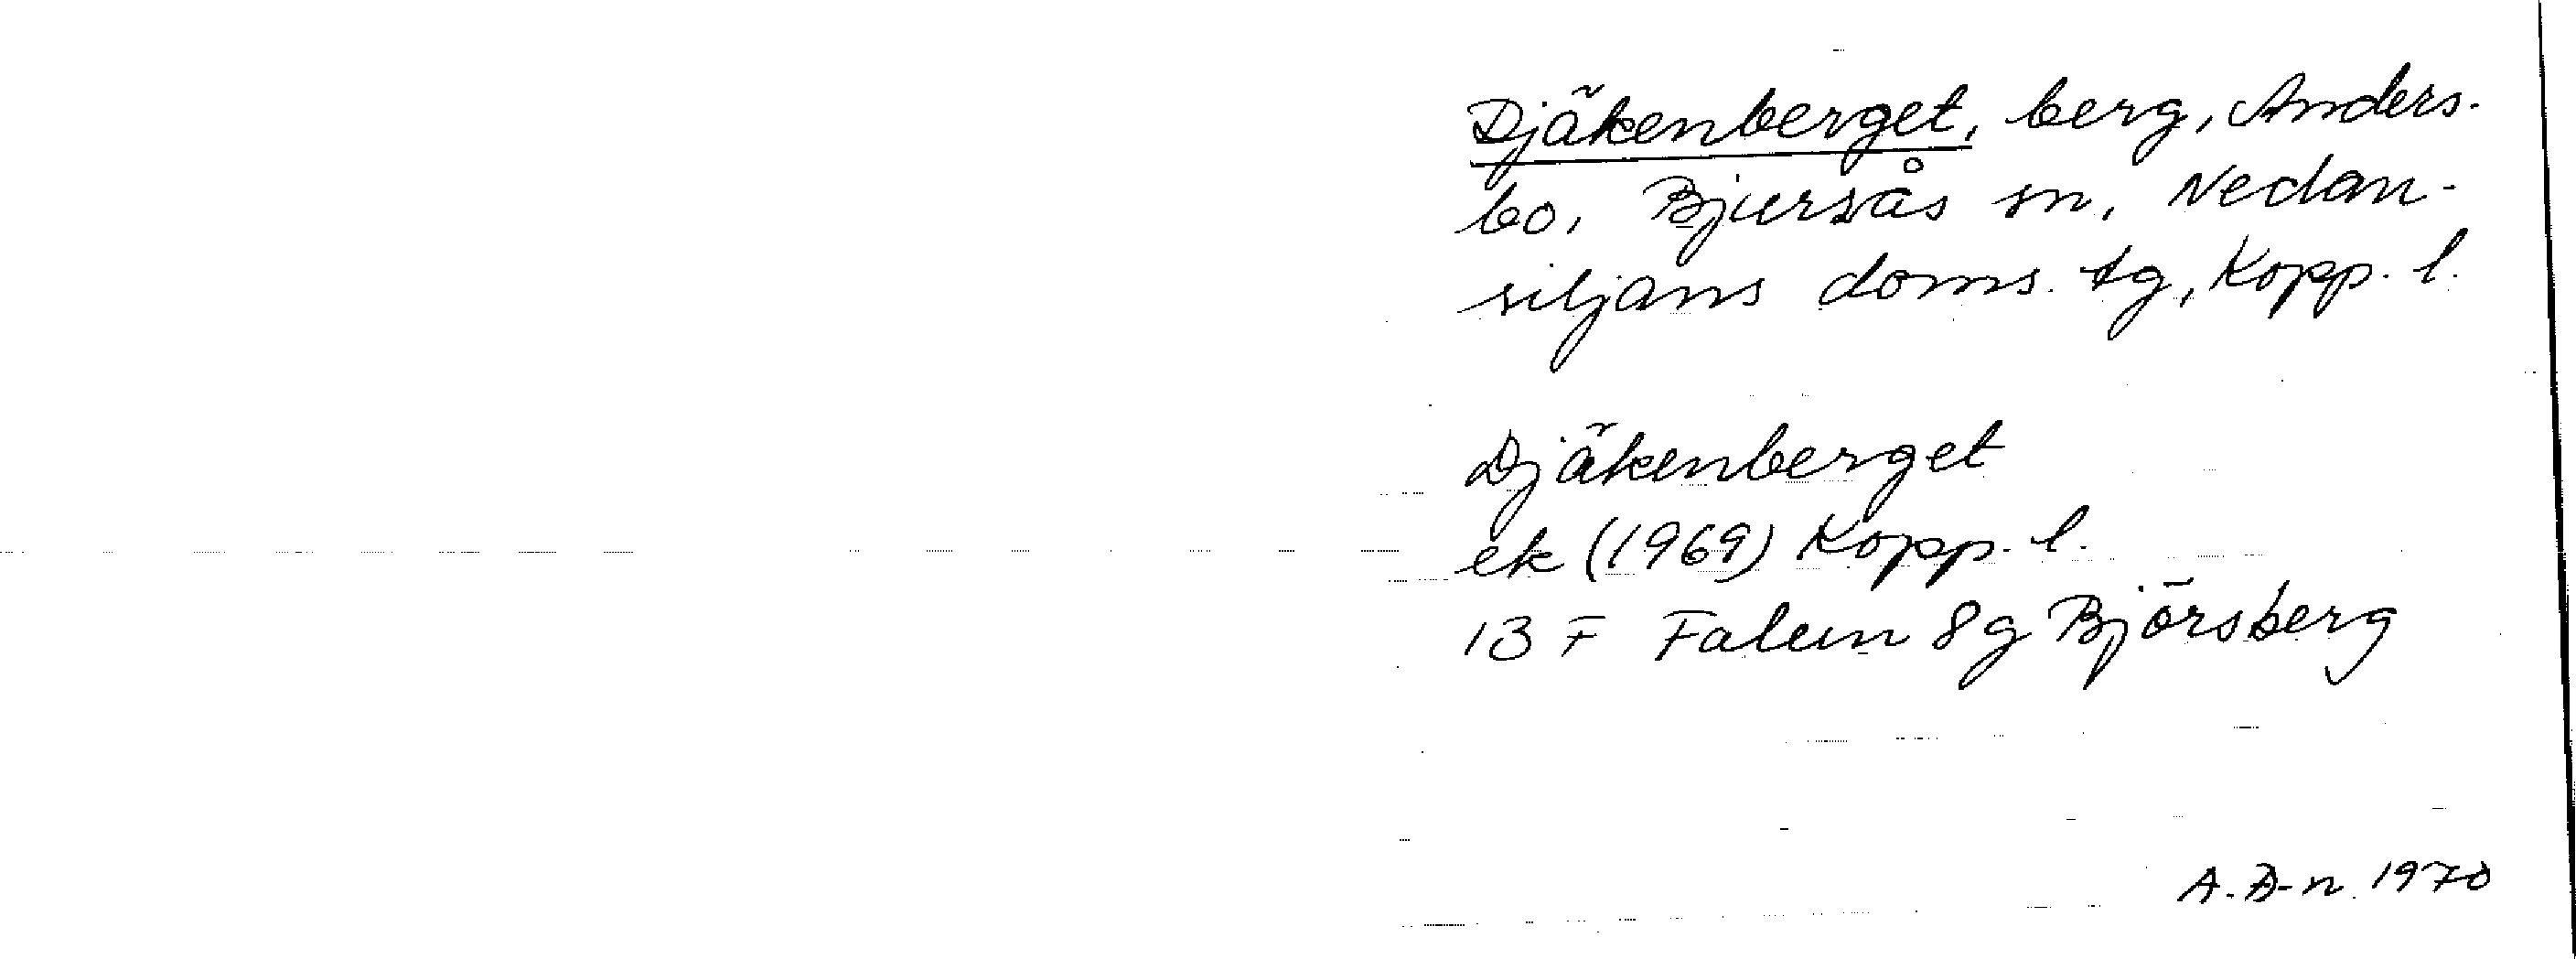 Djäkenberget, berg, Anders-
bo, Bjursås sn, Nedan-
siljans doms. tg, Kopp. l.
Djäkenberget
ek (1969) Kopp. l.
13 F Falun 8g Björsberg
A. D-n 1970